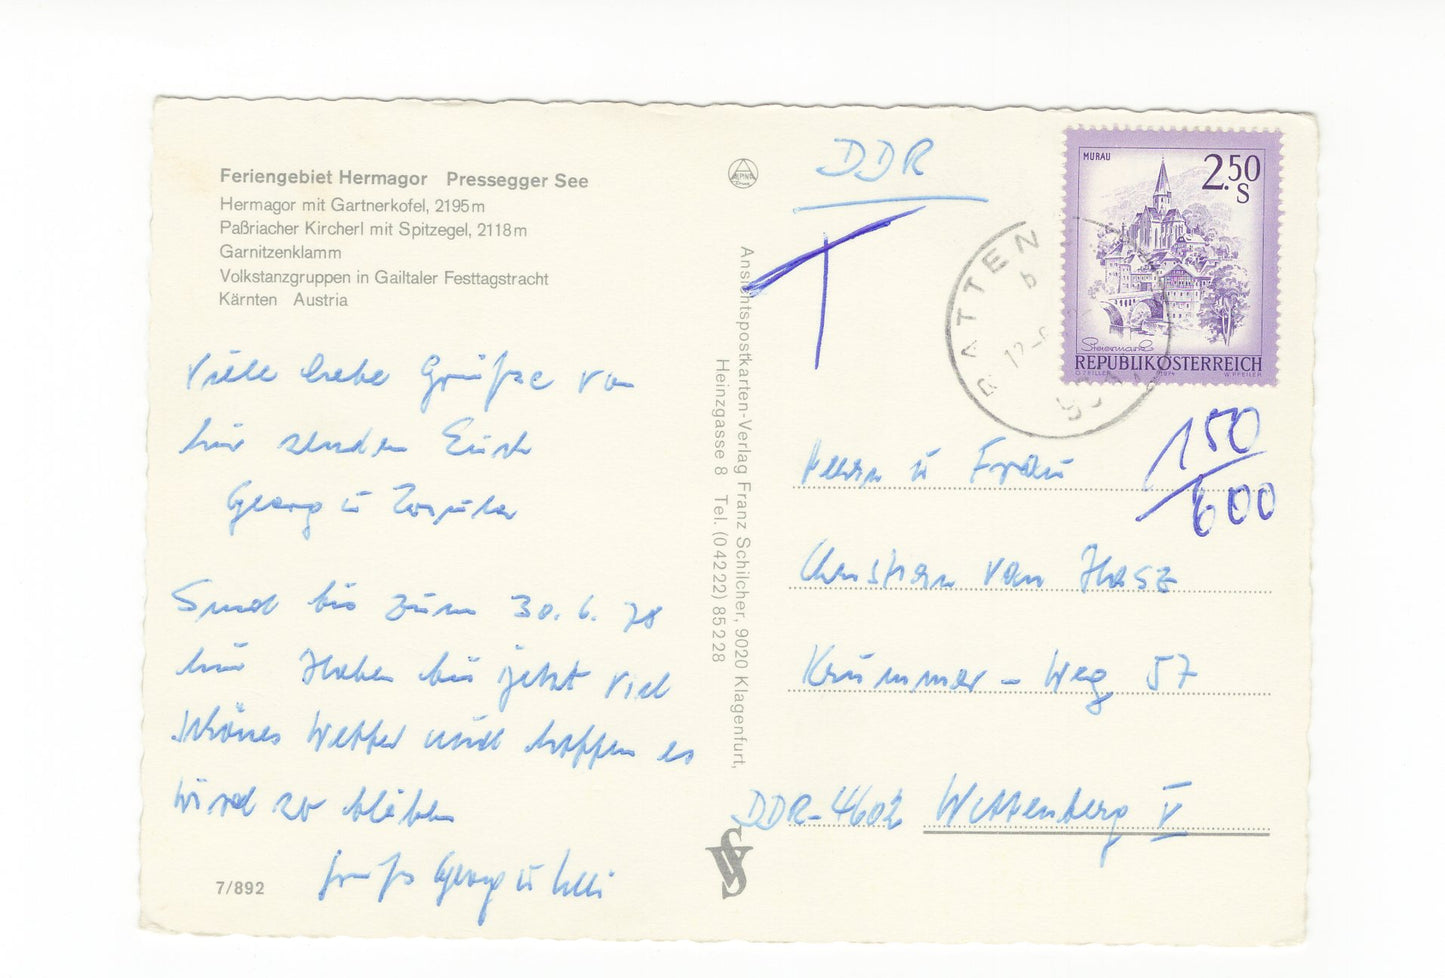 Feriengebiet Hermagor Pressegger See
Hermagor mit Gartnerkofel, 2195 m
Paßriacher Kircherl mit Spitzegel, 2118 m
Garnitzenklamm
Volkstanzgruppen in Gailtaler Festtagstracht
Kärnten Austria
Viele liebe Grüße von
hier senden Euch
Georg u
Sind bis zum 30.6.78
hier Haben bis jetzt viel
schönes Wetter und hoffen es
wird so bleiben
Gruß Georg u
7/892
Ansichtspostkarten-Verlag Franz Schilcher, 9020 Klagenfurt,
Heinzgasse 8 Tel. (04222) 85228
DDR
T
MURAU
2.50
S
Steiermark
REPUBLIK ÖSTERREICH
1974
W. PFEILER
RATTEN
b
12-6
150
600
Herrn u Frau
Christian van
Krummer-Weg 57
DDR-4602 Wittenberg V